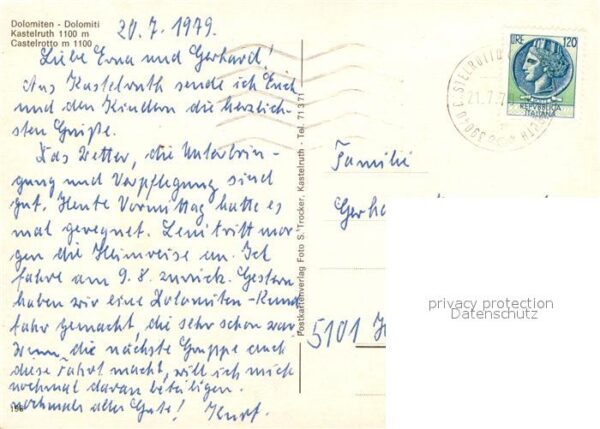 Dolomiten - Dolomiti
Kastelruth 1100 m
Castelrotto m 1100
20.7.1979.
Liebe Erna und Gerhard!
Aus Kastelruth sende ich Euch
und den Kindern die herzlich-
sten Grüße.
Das Wetter, die Unterbrin-
gung und Verpflegung sind
gut. Heute Vormittag hatte es
mal geregnet. Leni tritt mor-
gen die Heimreise an. Ich
fahre am 9.8. zurück. Gestern
haben wir eine Dolomiten-Rund
fahr gemacht, die sehr schön war.
Wenn die nächste Gruppe auch
diese Fahrt macht, will ich mich
nochmal daran beteiligen.
Nochmals alles Gute! Kurt.
156
Postkartenverlag Foto S. Trocker, Kastelruth - Tel. 71371
LIRE 120
REPVBBLICA
ITALIANA
CASTELROTTO
21.7.7
39040
Familie
Gerha
5101
privacy protection
Datenschutz